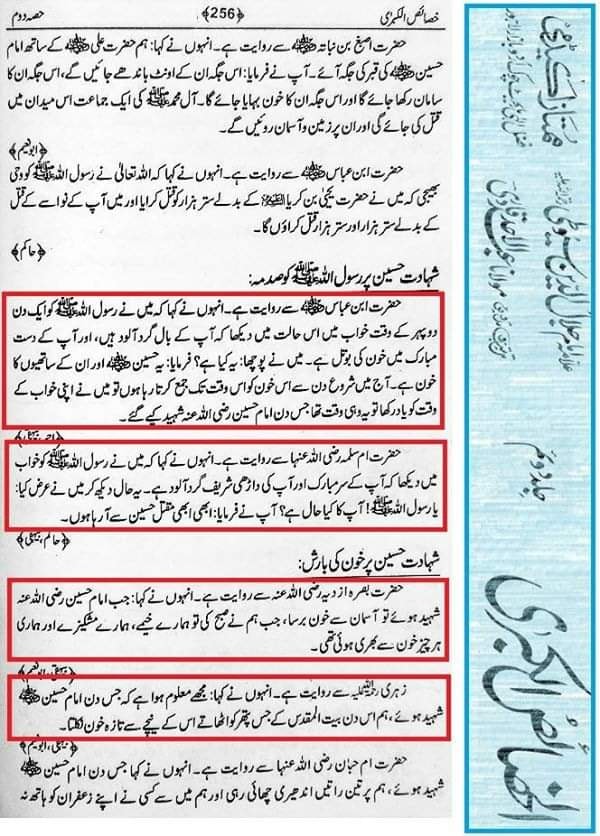 خصائص الکبریٰ
﴿256﴾
حصہ دوم
حضرت اصبغ بن نباتہ ﷺ سے روایت ہے۔ انہوں نے کہا: ہم حضرت علی ﷺ کے ساتھ امام
حسین ﷺ کی قبر کی جگہ آئے۔ آپ نے فرمایا: اس جگہ ان کے اونٹ باندھے جائیں گے، اس جگہ ان کا
سامان رکھا جائے گا اور اس جگہ ان کا خون بہایا جائے گا۔ آل محمد ﷺ کی ایک جماعت اس میدان میں
قتل کی جائے گی اور ان پر زمین و آسمان روئیں گے۔
﴿ابونعیم﴾
حضرت ابن عباس ﷺ سے روایت ہے۔ انہوں نے کہا کہ اللہ تعالیٰ نے رسول اللہ ﷺ کو وحی
بھیجی کہ میں نے حضرت یحییٰ بن زکریا کے بدلے ستر ہزار کو قتل کرایا اور میں آپ کے نواسے کے قتل
کے بدلے ستر ہزار اور ستر ہزار قتل کراؤں گا۔
﴿حاکم﴾
شہادت حسین پر رسول اللہ ﷺ کو صدمہ:
حضرت ابن عباس ﷺ سے روایت ہے۔ انہوں نے کہا کہ میں نے رسول اللہ ﷺ کو ایک دن
دو پہر کے وقت خواب میں اس حالت میں دیکھا کہ آپ کے بال گرد آلود ہیں، اور آپ کے دست
مبارک میں خون کی بوتل ہے۔ میں نے پوچھا: یہ کیا ہے؟ فرمایا: یہ حسین ﷺ اور ان کے ساتھیوں کا
خون ہے۔ آج میں شروع دن سے اس خون کو اس وقت تک جمع کرتا رہا ہوں تو میں نے اپنی خواب کے
وقت کو یاد رکھا تو یہ وہی وقت تھا جس دن امام حسین رضی اللہ عنہ شہید کیے گئے۔
﴿احمد، بیہقی﴾
حضرت ام سلمہ رضی اللہ عنہا سے روایت ہے۔ انہوں نے کہا کہ میں نے رسول اللہ ﷺ کو خواب
میں دیکھا کہ آپ کے سر مبارک اور آپ کی داڑھی شریف گرد آلود ہے۔ یہ حال دیکھ کر میں نے عرض کیا:
یا رسول اللہ ﷺ! آپ کا کیا حال ہے؟ آپ نے فرمایا: ابھی ابھی مقتل حسین سے آ رہا ہوں۔
﴿حاکم، بیہقی﴾
شہادت حسین پر خون کی بارش:
حضرت بصرہ ازدیہ رضی اللہ عنہ سے روایت ہے۔ انہوں نے کہا: جب امام حسین رضی اللہ عنہ
شہید ہوئے تو آسمان سے خون برسا، جب ہم نے صبح کی تو ہمارے خیمے، ہمارے مشکیزے اور ہماری
ہر چیز خون سے بھری ہوئی تھی۔
﴿بیہقی، ابونعیم﴾
زہری رحمۃ اللہ علیہ سے روایت ہے۔ انہوں نے کہا: مجھے معلوم ہوا ہے کہ جس دن امام حسین ﷺ
شہید ہوئے، ہم اس دن بیت المقدس کے جس پتھر کو اٹھاتے اس کے نیچے سے تازہ خون نکلتا۔
﴿بیہقی، ابونعیم﴾
حضرت ام حبان رضی اللہ عنہا سے روایت ہے۔ انہوں نے کہا جس دن امام حسین ﷺ
شہید ہوئے، ہم پر تین راتیں اندھیری چھائی رہی اور ہم میں سے کسی نے اپنے زعفران کو ہاتھ نہ
الخصائص الکبریٰ
جلد دوم
علامہ جلال الدین سیوطی
ممتاز اکیڈمی